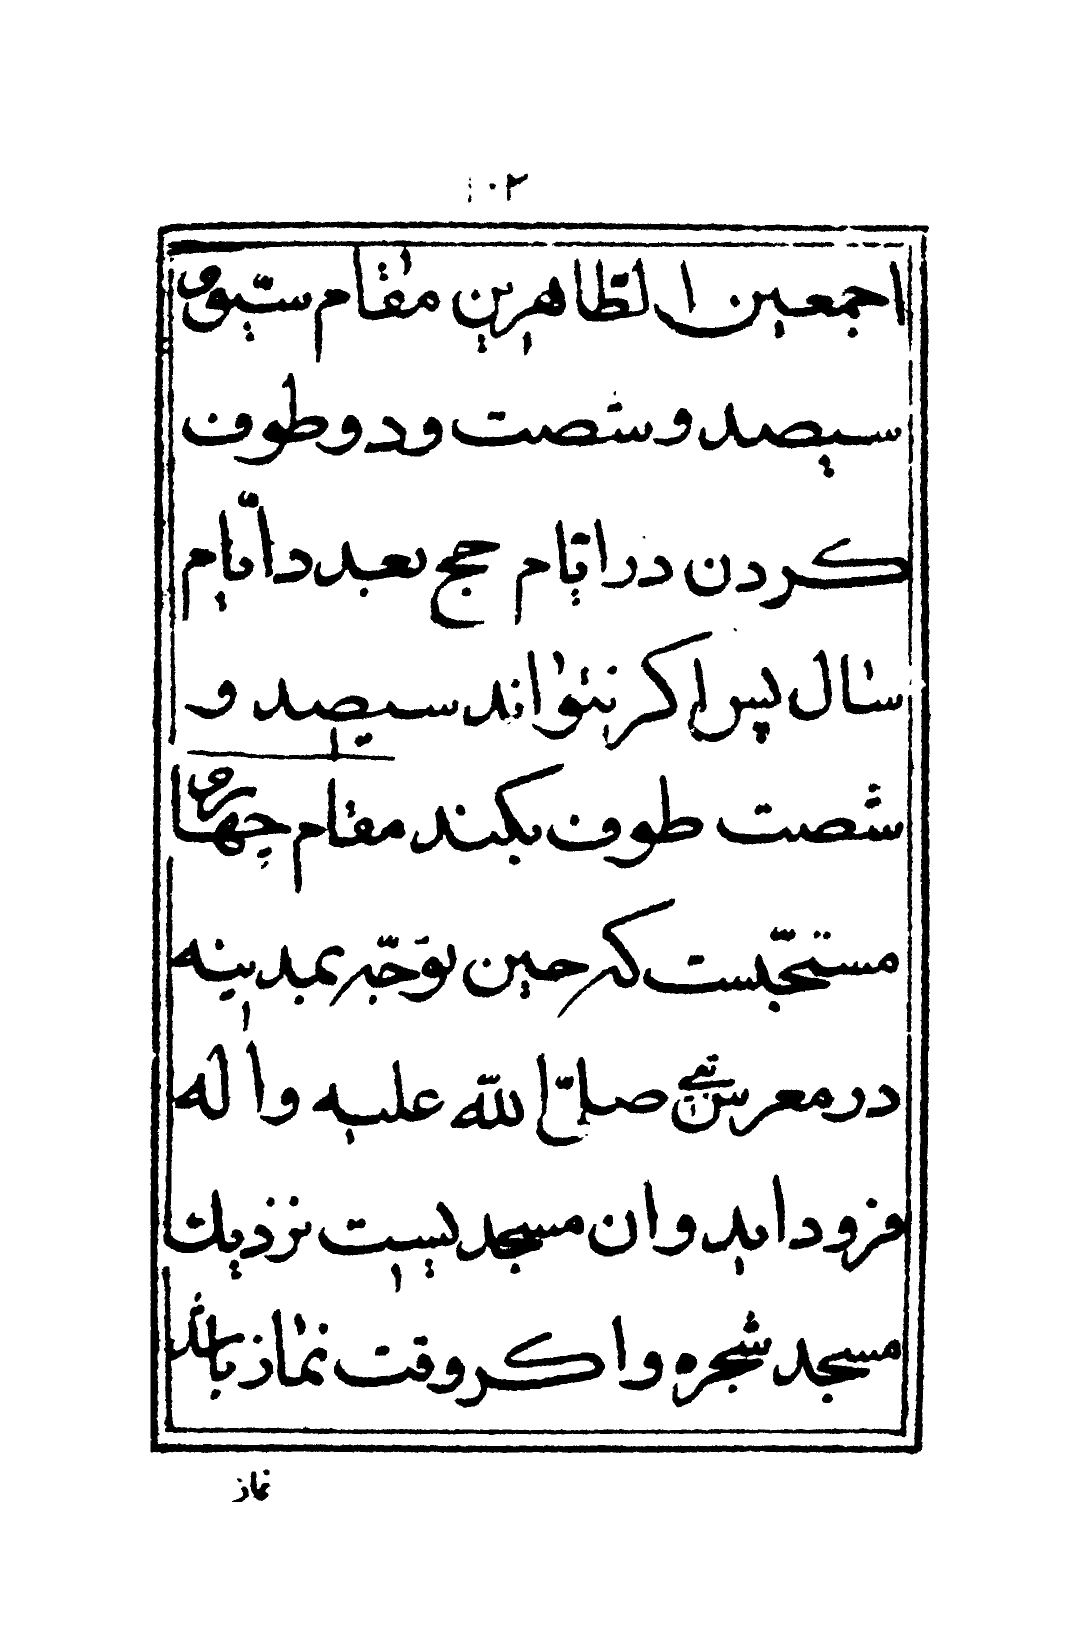 ١٠٢
اجمعین الطّاهرین مقام سیّوم
سیصد و شصت و دو طوف
کردن در ایّام حج بعد د ایّام
سال پس اکر نتواند سیصد و
شصت طوف بکند مقام چهارم
مستحبّست که حین توجّه بمدینه
در معرس نبی صلّی اللّه علیه و اله
فرود اید و ان مسجدیست نزدیك
مسجد شجره و اکر وقت نماز باشد
نماز